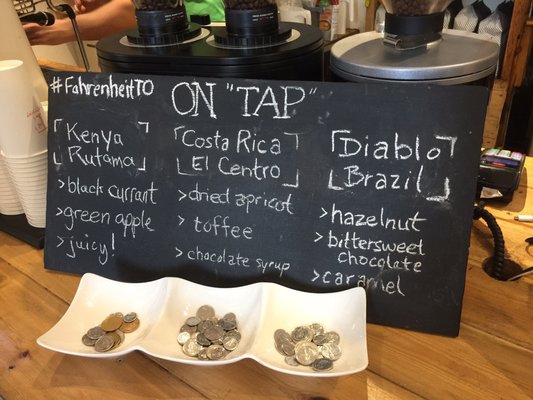 #FahrenheitTO
ON "TAP"
Kenya
Rutama
> black currant
> green apple
> juicy!
Costa Rica
El Centro
> dried apricot
> toffee
> chocolate syrup
Diablo
Brazil
> hazelnut
> bittersweet
chocolate
> caramel